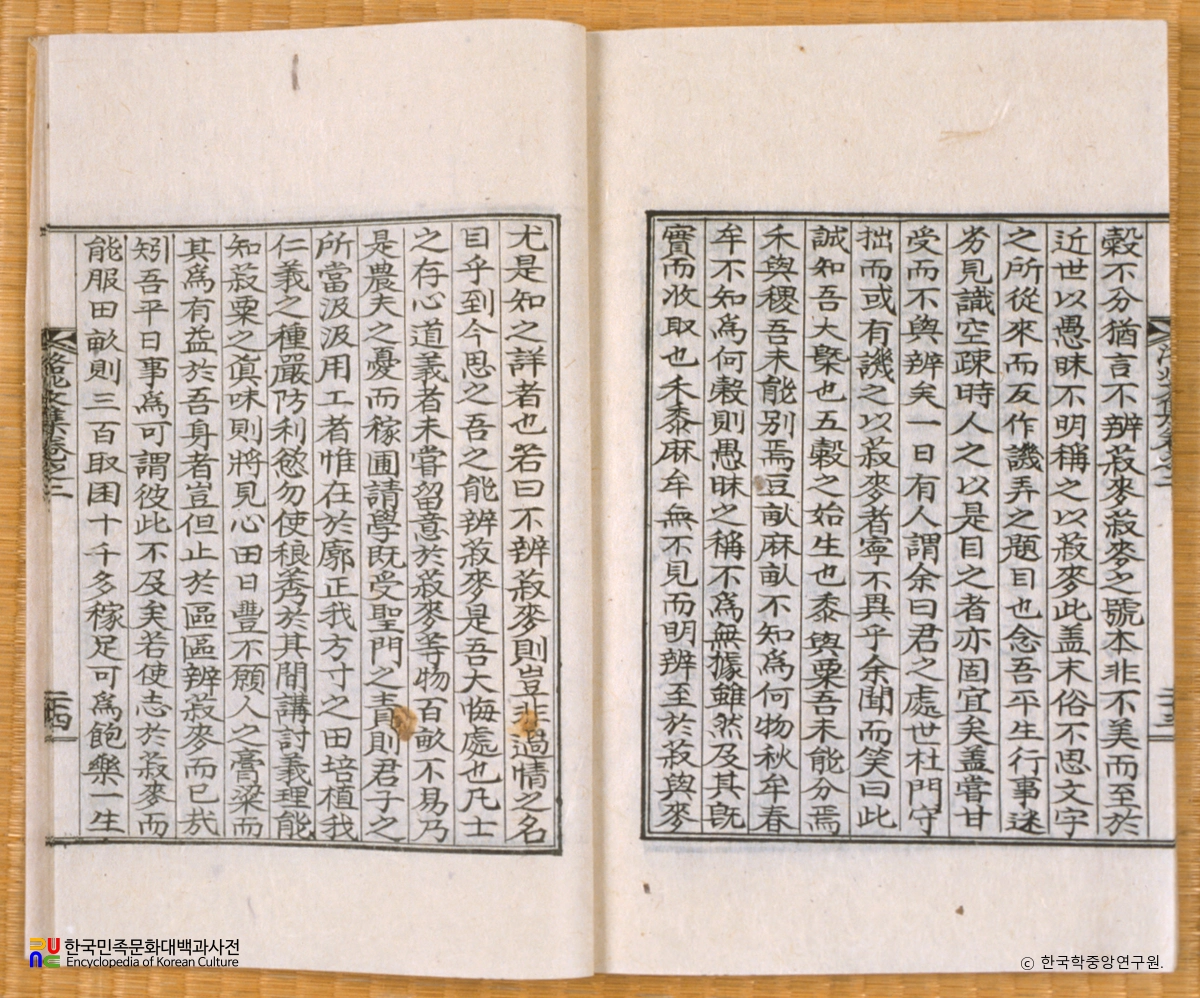 穀不分猶言不辨菽麥菽麥之號本非不美而至於
近世以愚昧不明稱之以菽麥此盖末俗不思文字
之所從來而反作譏弄之題目也念吾平生行事迷
劣見識空疎時人之以是目之者亦固宜矣盖嘗甘
受而不與辨矣一日有人謂余曰君之處世杜門守
拙而或有譏之以菽麥者寧不異乎余聞而笑曰此
誠知吾大槩也五穀之始生也黍與粟吾未能分焉
禾與稷吾未能別焉豆畝麻畝不知爲何物秋牟春
牟不知爲何穀則愚昧之稱不爲無據雖然及其旣
實而收取也禾黍麻牟無不見而明辨至於菽與麥
尤是知之詳者也若曰不辨菽麥則豈非過情之名
目乎到今思之吾之能辨菽麥是吾大悔處也凡士
之存心道義者未嘗留意於菽麥等物百畝不易乃
是農夫之憂而稼圃請學旣受聖門之責則君子之
所當汲汲用工者惟在於廓正我方寸之田培植我
仁義之種嚴防利慾勿使稂莠於其間講討義理能
知菽粟之眞味則將見心田日豐不願人之膏粱而
其爲有益於吾身者豈但止於區區辨菽麥而已㢤
矧吾平日事爲可謂彼此不及矣若使志於菽麥而
能服田畝則三百取囷十千多稼足可爲飽樂一生
한국민족문화대백과사전
Encyclopedia of Korean Culture
ⓒ 한국학중앙연구원.